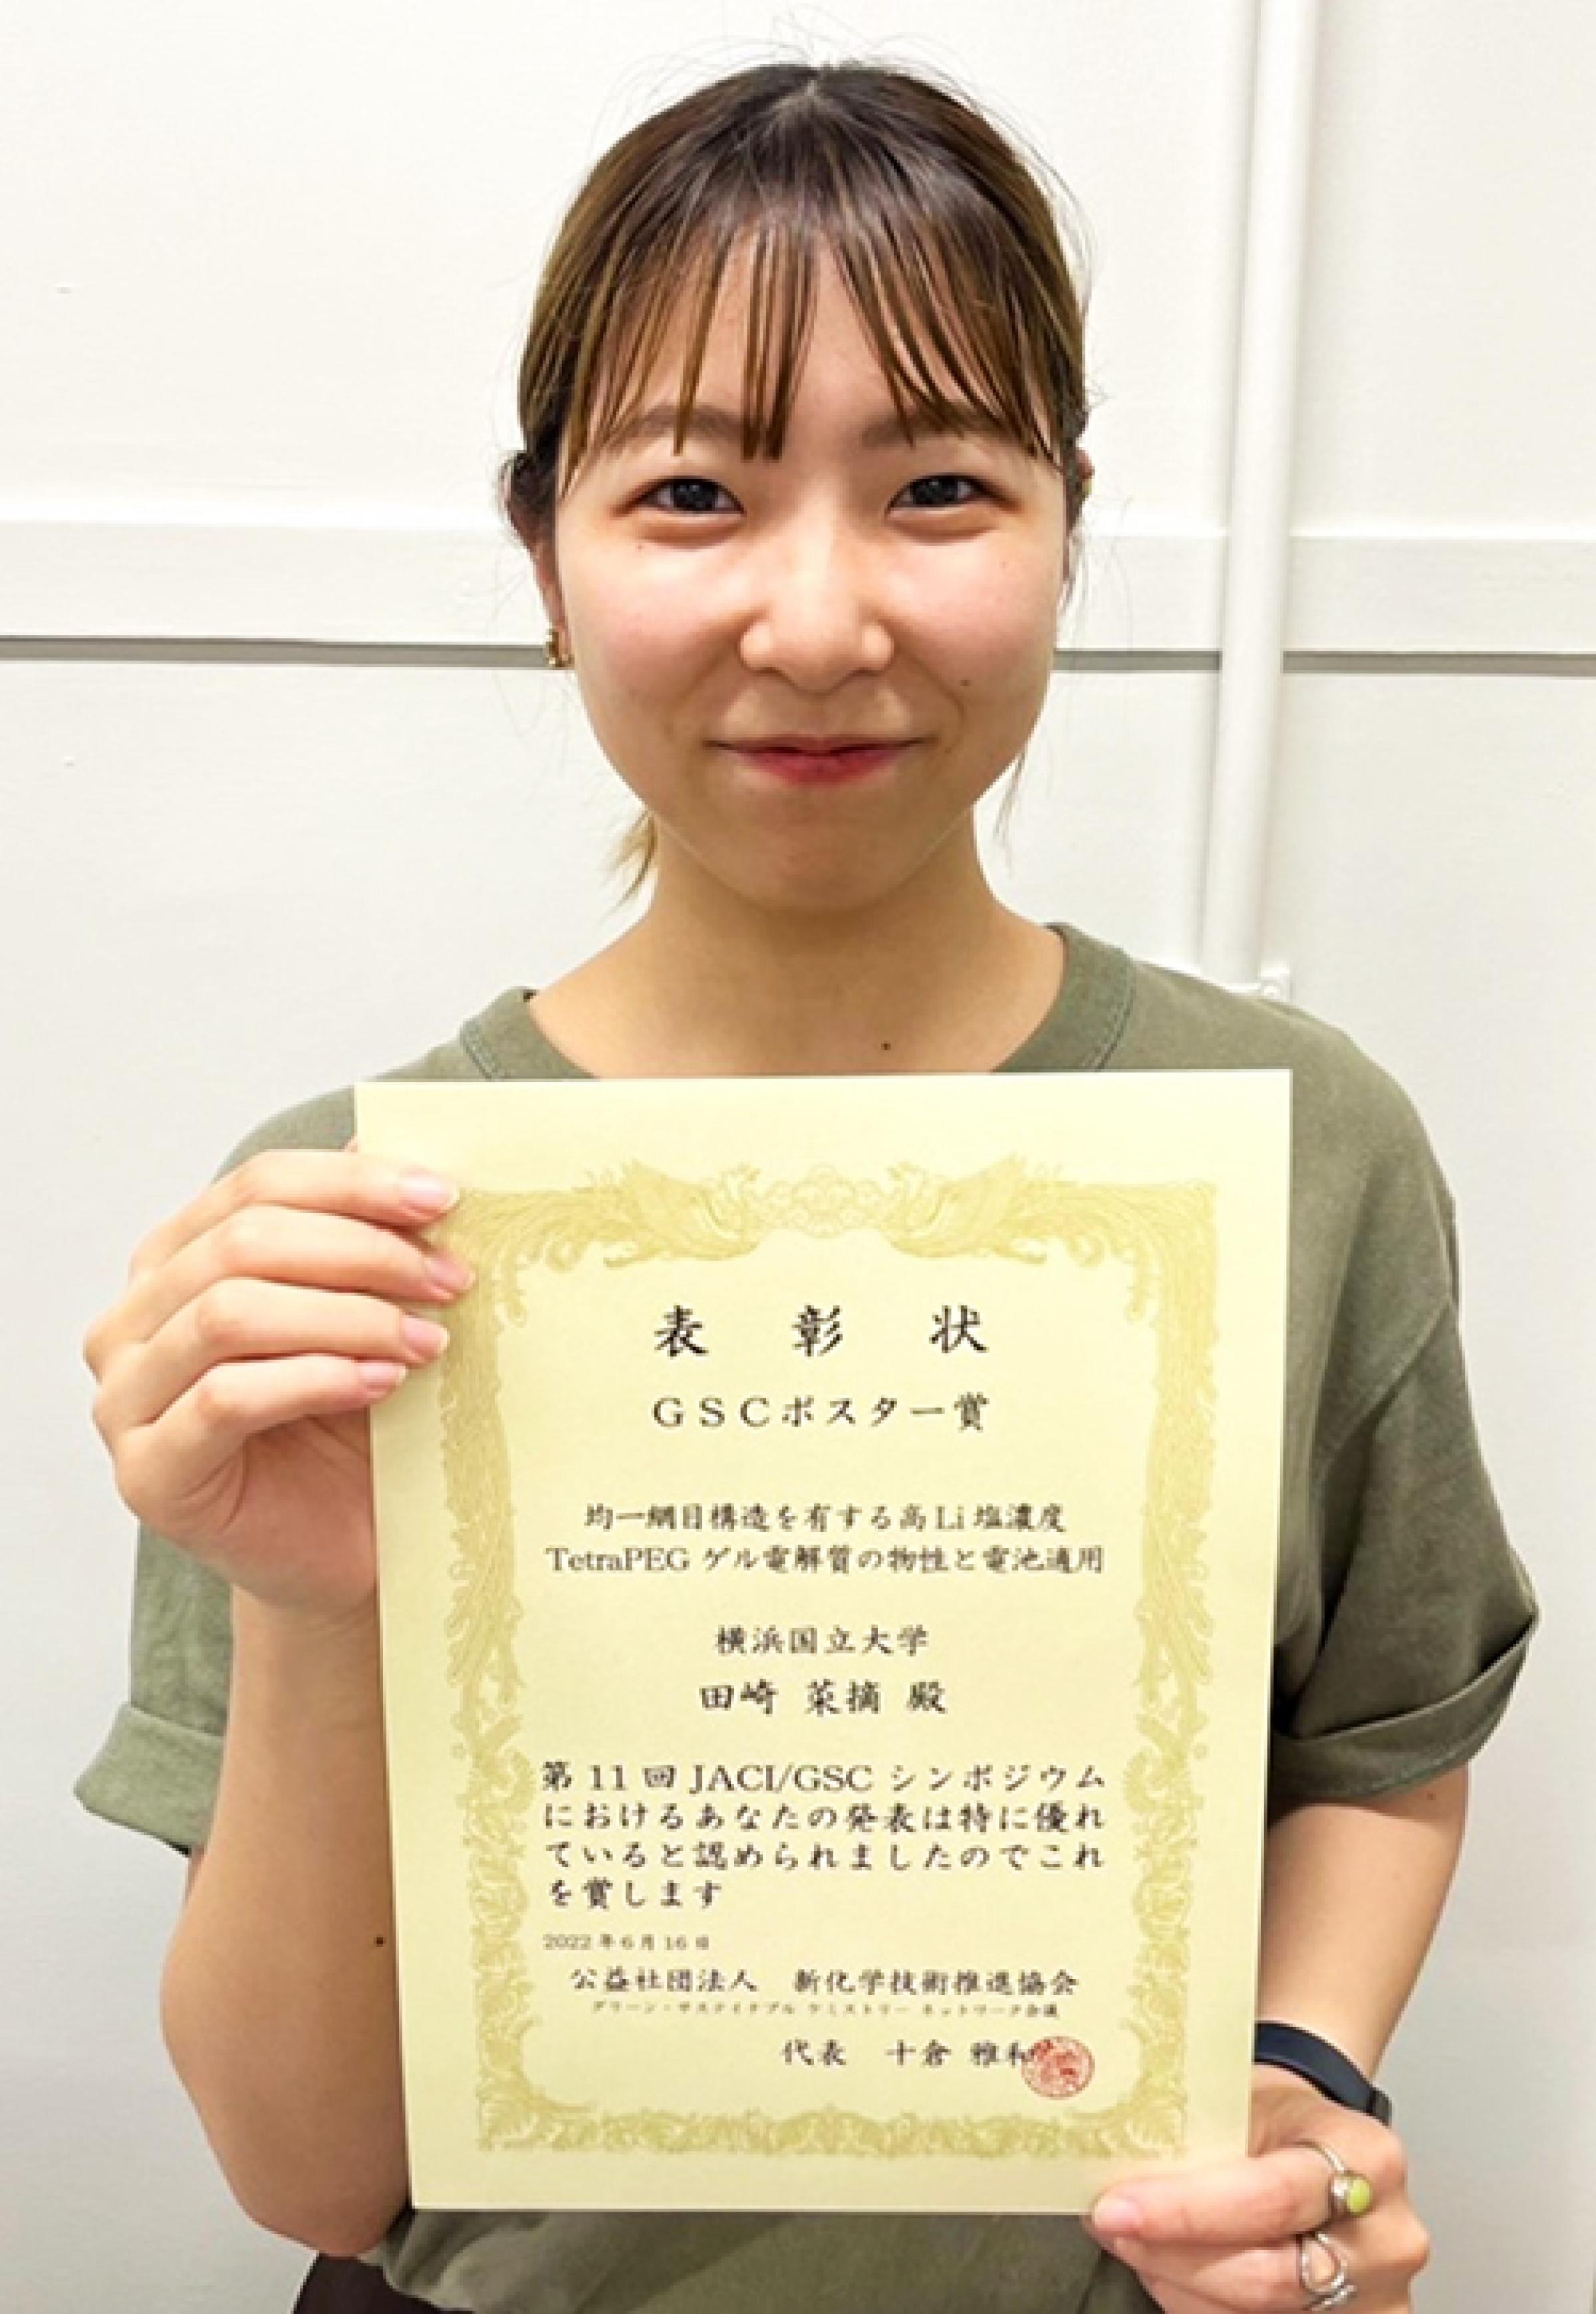 表彰状
GSCポスター賞
均一網目構造を有する高Li塩濃度
TetraPEGゲル電解質の物性と電池適用
横浜国立大学
田崎 菜摘 殿
第11回JACI/GSCシンポジウム
におけるあなたの発表は特に優れ
ていると認められましたのでこれ
を賞します
2022年6月16日
公益社団法人 新化学技術推進協会
グリーン・サステイナブル ケミストリー ネットワーク会議
代表 十倉 雅和